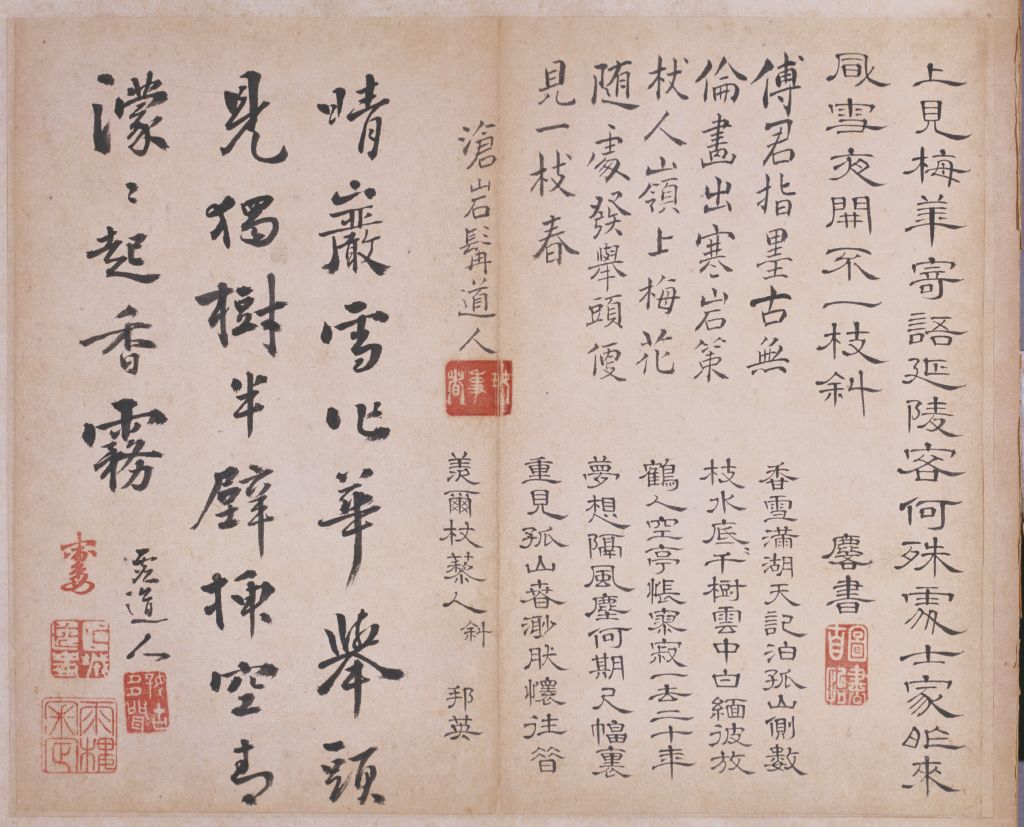 上見梅華寄語延陵客何殊處士家昨來
凮雪夜開不一枝斜
麐書
傅君指墨古無
倫畫出寒岩策
杖人山嶺上梅花
随處發舉頭便
見一枝春
滄岩髯道人
香雪滿湖天記泊孤山側數
枝水底千樹雲中白緬彼放
鶴人空亭悵寥寂一去二十年
夢想隔風塵何期尺幅裏
重見孤山春渺肰懷往昝
羨爾杖藜人斜 邦英
晴巖雪作華舉頭
見獨樹半壁插空青
濛〻起香霧
道人